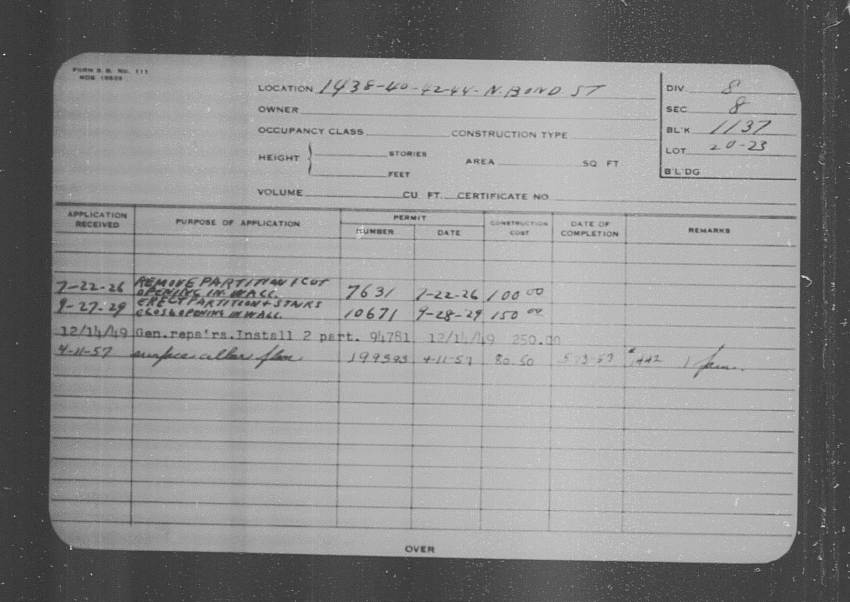 FORM S. B. No. 111
LOCATION 1438-40-42-44-N. BOND ST
DIV. 8
OWNER
SEC 8
OCCUPANCY CLASS CONSTRUCTION TYPE
BL'K 1137
HEIGHT STORIES FEET AREA SQ FT
LOT 20-23
B'L'DG
VOLUME CU FT. CERTIFICATE NO
APPLICATION RECEIVED PURPOSE OF APPLICATION PERMIT NUMBER DATE CONSTRUCTION COST DATE OF COMPLETION REMARKS
7-22-26 REMOVE PARTITION & CUT
OPENING IN WALL. 7631 7-22-26 100 00
9-27-29 ERECT PARTITION + STAIRS
CLOSE OPENING IN WALL. 10671 9-28-29 150 00
12/14/49 Gen.repairs.Install 2 part. 94781 12/14/49 250.00
4-11-57 surface cellar floor 199393 4-11-57 80.50 1 fam.
OVER